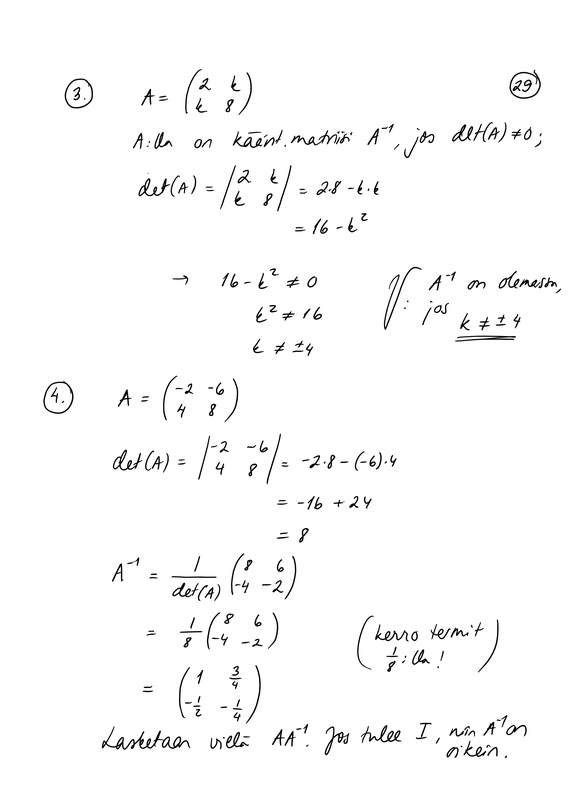 3. A = (2 k; k 8) 29
A:lla on käänt.matriisi A⁻¹, jos det(A) ≠ 0;
det(A) = |2 k; k 8| = 2·8 − k·k
= 16 − k²
→ 16 − k² ≠ 0 V: A⁻¹ on olemassa,
k² ≠ 16 jos k ≠ ±4
k ≠ ±4
4. A = (−2 −6; 4 8)
det(A) = |−2 −6; 4 8| = −2·8 − (−6)·4
= −16 + 24
= 8
A⁻¹ = 1/det(A) (8 6; −4 −2)
= 1/8 (8 6; −4 −2) (kerro termit
1/8:lla!)
= (1 3/4; −1/2 −1/4)
Lasketaan vielä AA⁻¹. Jos tulee I, niin A⁻¹ on
oikein.